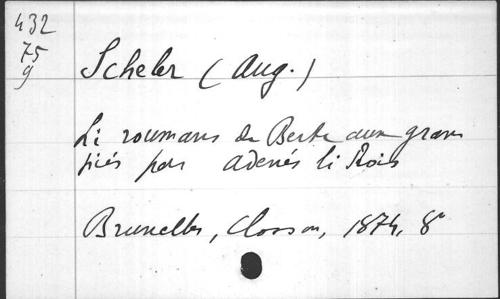 432
75
g
Scheler (Aug.)
Li roumans de Berte aux grans
piés par Adenés li Rois
Bruxelles, Closson, 1874, 8°